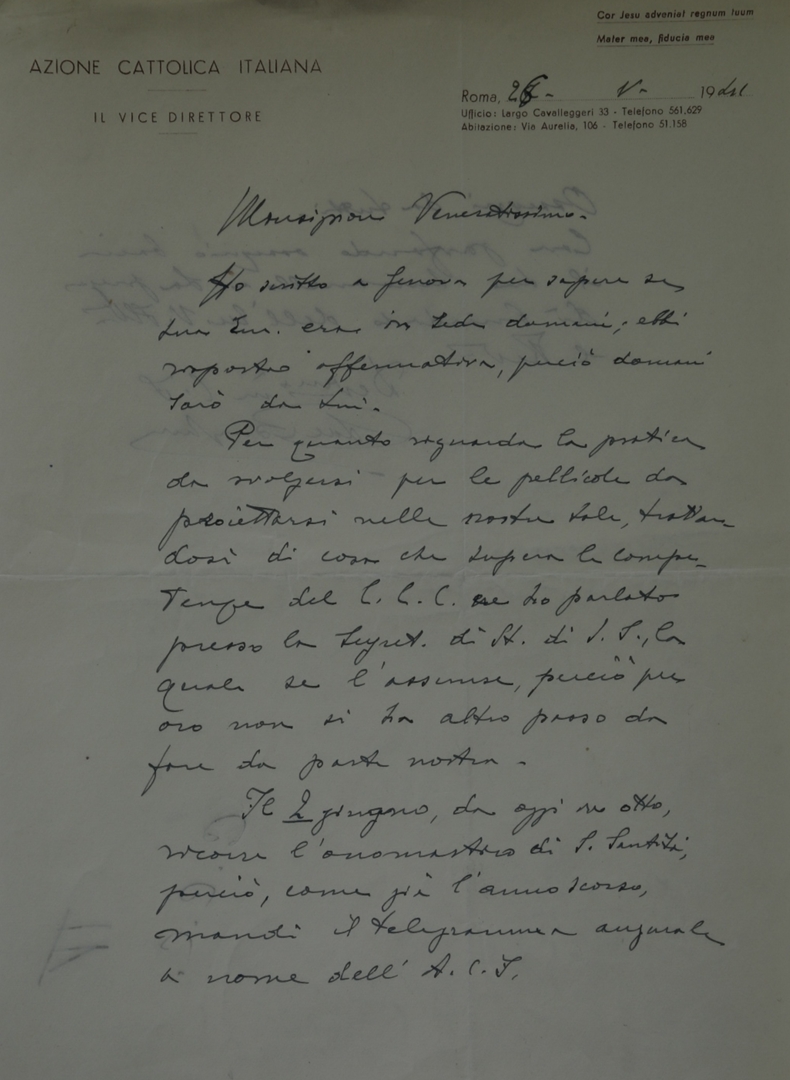 Cor Jesu adveniat regnum tuum
Mater mea, fiducia mea
AZIONE CATTOLICA ITALIANA
IL VICE DIRETTORE
Roma, 26 - V - 19
Ufficio: Largo Cavalleggeri 33 - Telefono 561.629
Abitazione: Via Aurelia, 106 - Telefono 51.158
Monsignore Veneratissimo.
Ho scritto a Genova per sapere se
Sua Em. era in sede domani; ebbi
risposta affermativa, perciò domani
sarò da Lui.
Per quanto riguarda la pratica
da svolgersi per le pellicole da
proiettarsi nelle nostre sale, trattan-
dosi di cosa che supera le compe-
tenze del C. C. C. ne ho parlato
presso la Segret. di St. di S. S., la
quale se l'assunse, perciò per
ora non si ha altro passo da
fare da parte nostra.
Il 2 giugno, da oggi in otto,
ricorre l'onomastico di S. Santità,
perciò, come già l'anno scorso,
mandi il telegramma augurale
a nome dell'A.C.I.